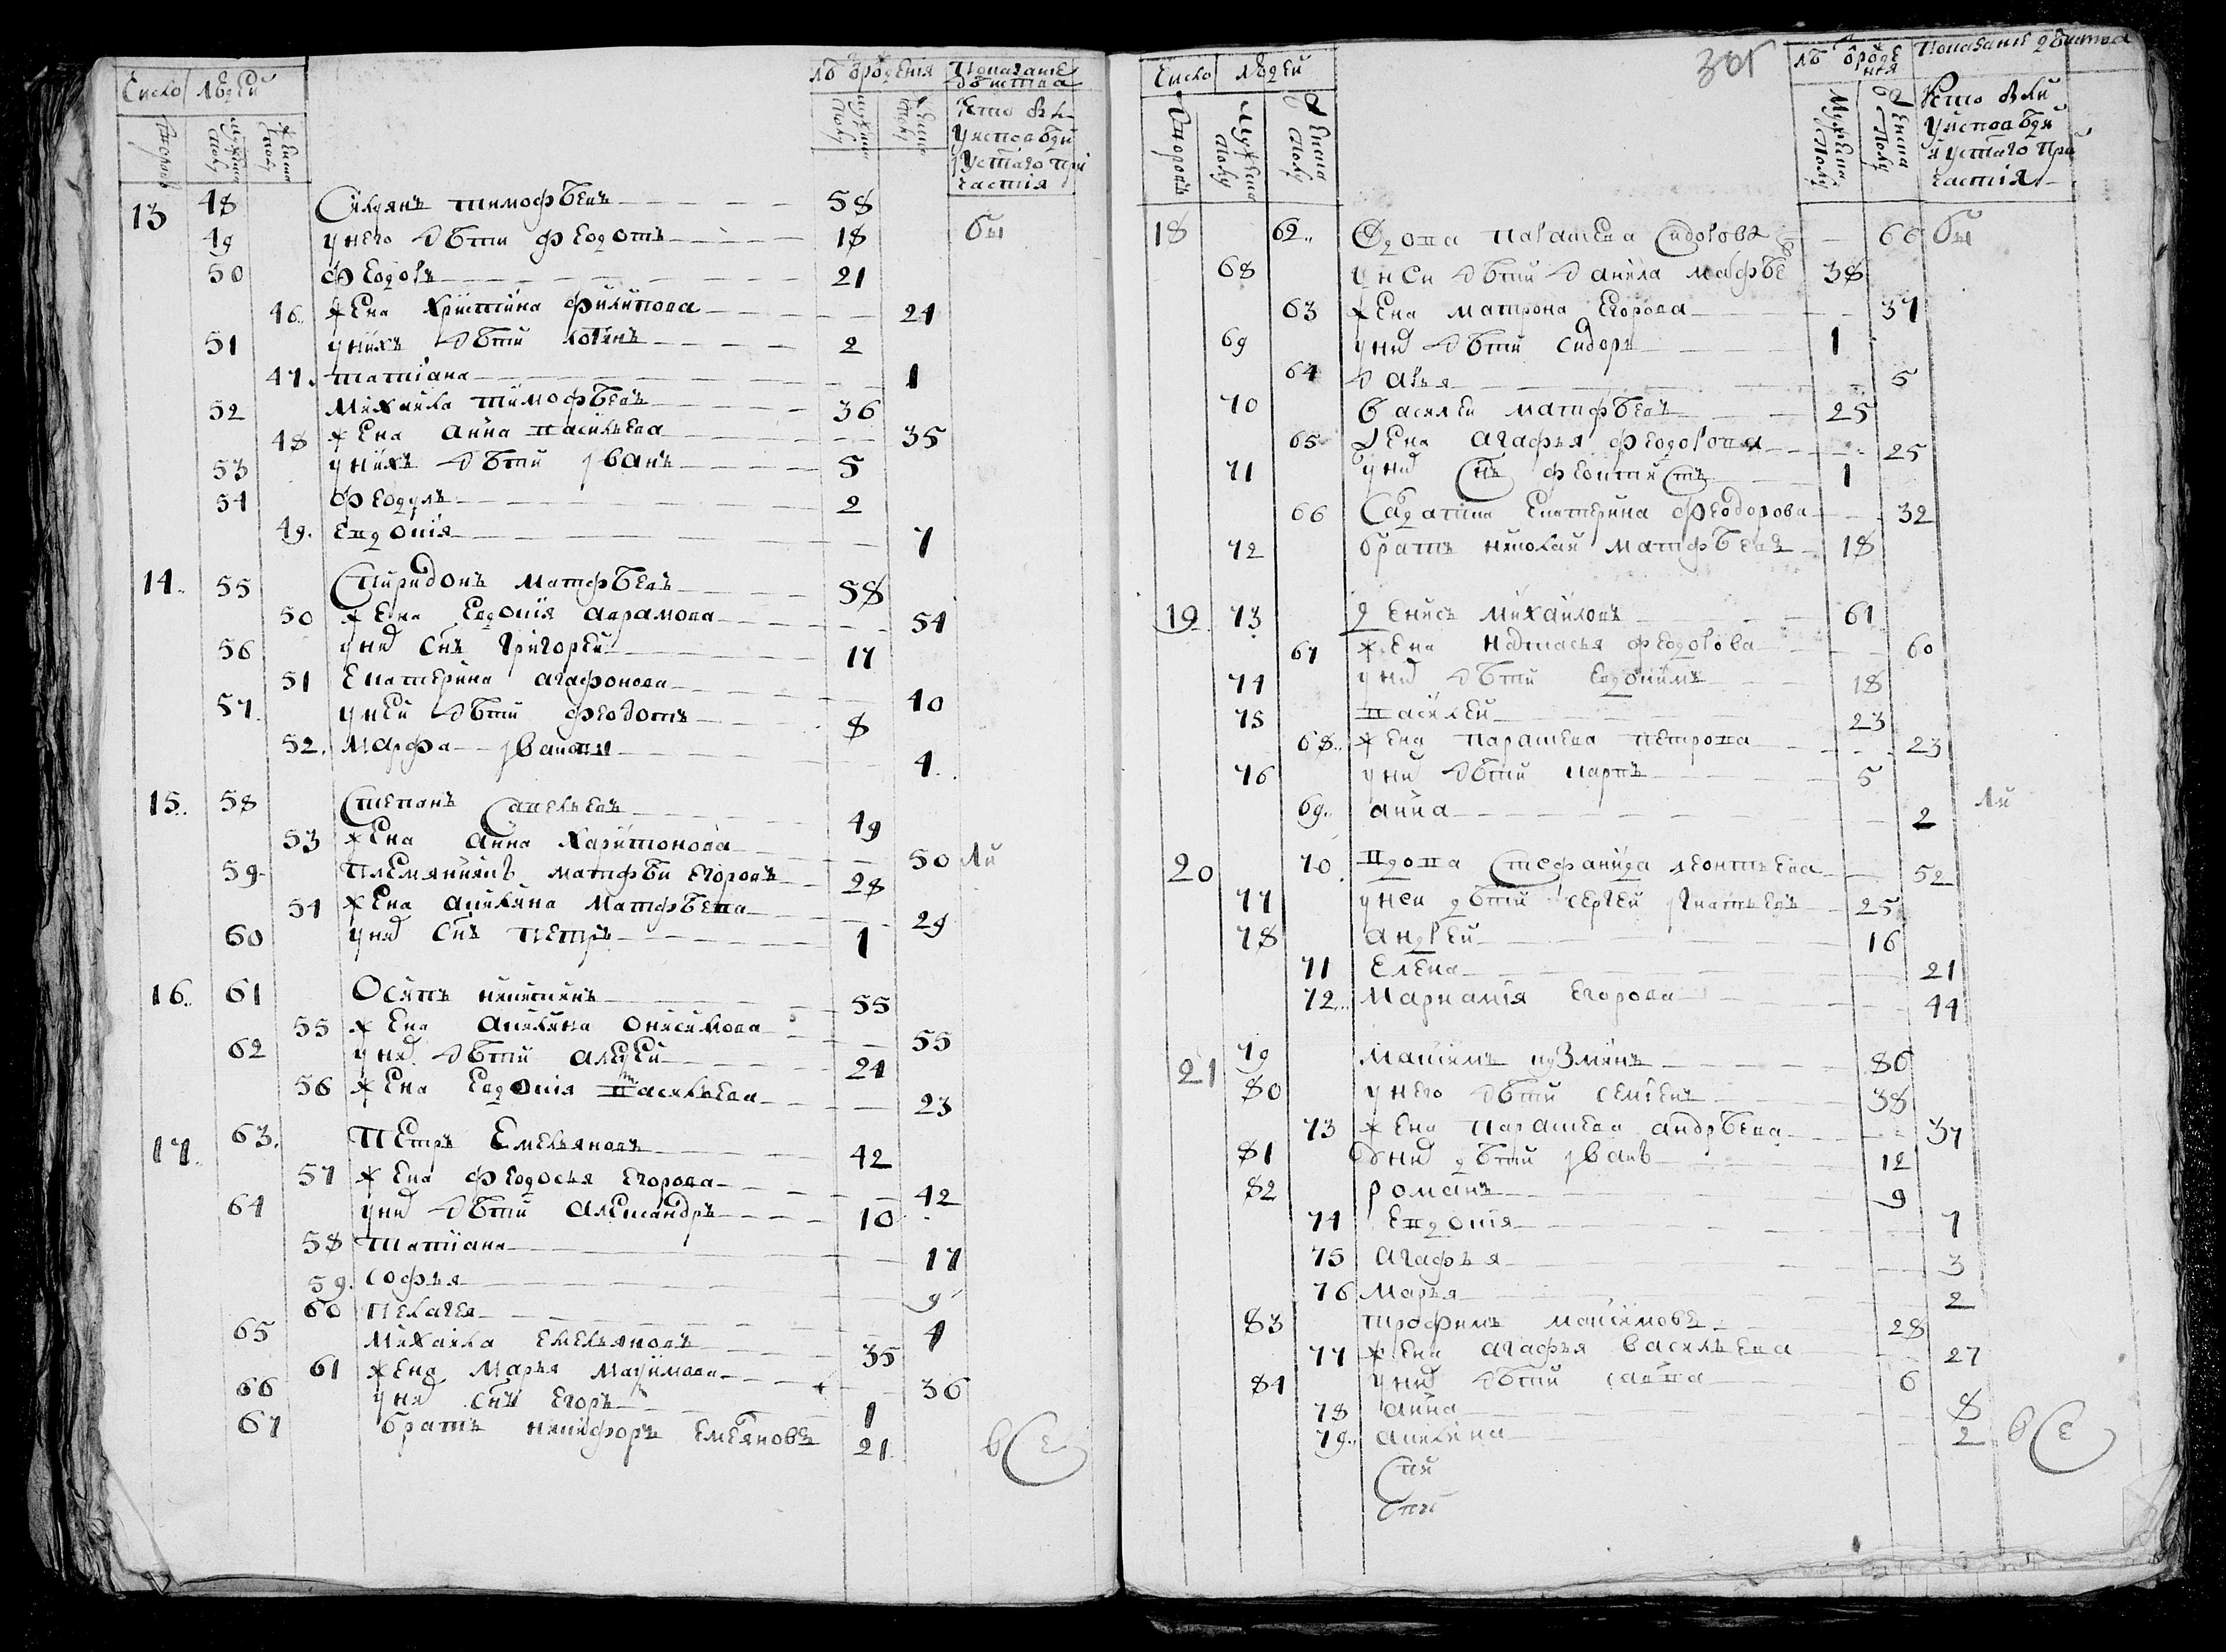 Число людей
лѣт ѿ рождения
Показание бытия
Дворовъ
Мужеска полу
Женска полу
Мужеска полу
Женска полу
Кто былъ у исповѣди и у стаго причастия
13 48 Силуянъ Тимофѣевъ 58
49 у него дѣти Федотъ 18 бы
50 Федоръ 21
46 жена Христина Филипова 24
51 у нихъ дѣти 2
47 Татиана 1
52 Михаила Тимофѣевъ 36
48 жена Анна Васильева 35
53 у нихъ дѣти Iванъ 5
54 Феодулъ 2
49 Евдокiя 7
14 55 Спиридонъ Матфѣевъ 58
50 жена Евдокiя Аврамова 54
56 у нихъ снъ Григорей 17
51 Екатерина Агафонова 40
57 у ней дѣти Феодотъ 8
52 Марфа 4
15 58 Степанъ Савельевъ 49
53 жена Анна Харитонова 50 ли
59 племянникъ Матфѣй Егоровъ 28
54 жена Акилина Матфѣева 29
60 у нихъ снъ Петръ 1
16 61 Осипъ Никитинъ 55
55 жена Акилина Онисимова 55
62 у нихъ дѣти Алексей 24
56 жена Евдокiя Васильева 23
17 63 Петръ Емельяновъ 42
57 жена Феодосья Егорова 42
64 у нихъ дѣти Александръ 10
58 Татиана 17
59 Софья 9
60 Пелагея 4
65 Михаила Емельяновъ 35
61 жена Марья Максимова 36
66 у нихъ снъ Егоръ 1
67 братъ Никифоръ Емеяновъ 21 все
305
Число людей
лѣт ѿ рождения
Показание бытия
Дворовъ
Мужеска полу
Женска полу
Мужеска полу
Женска полу
Кто былъ у исповѣди и у стаго причастiя
18 62 Вдова Парасгева Сидорова 60 бы
68 у неи дѣти Данила Матфѣе 38
63 жена Матрона Егорова 37
69 у нихъ дѣти Сидоръ 1
64 Дарья 5
70 Василей Матфѣевъ 25
65 жена Агафья Феодорова 25
71 у нихъ снъ Феоктистъ 1
66 Салдатка Екатерина Феодорова 32
72 братъ Николай Матфѣевъ 18
19 73 Денисъ Михайловъ 61
67 жена Настасья Феодорова 60
74 у нихъ дѣти Евдокимъ 18
75 Василей 23
68 жена Парасгева Петрова 23
76 у нихъ дѣти Карпъ 5
69 Анна 2 ли
20 70 Вдова Стефанида Леонтьева 52
77 у неи дѣти Сергей Iгнатьевъ 25
78 Андрей 16
71 Елена 21
72 Егорова 44
21 79 Максимъ Кузминъ 80
80 у него дѣти 38
73 жена Парасгева Андрѣева 37
81 у нихъ дѣти Iванъ 12
82 Романъ 9
74 Евдокiя 7
75 Агафья 3
76 Марья 2
83 Трофимъ Максимовъ 28
77 жена Агафья Васильева 27
84 у нихъ дѣти Савва 6
78 Анна 8
79 Акилина 2 все